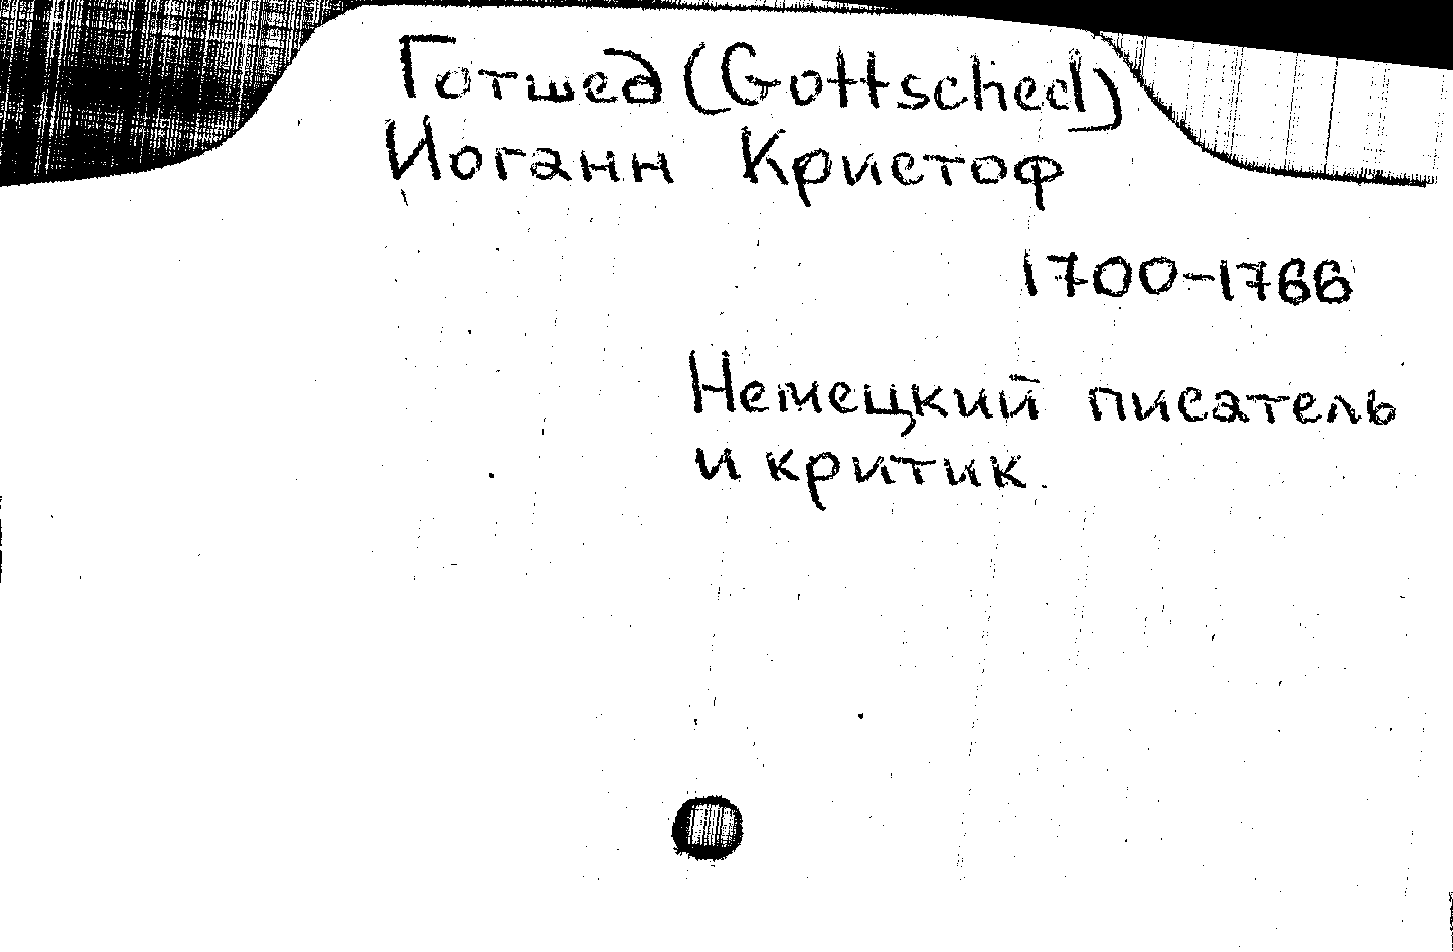 Готшед (Gottsched)
Иоганн Кристоф
1700-1766
Немецкий писатель
и критик.